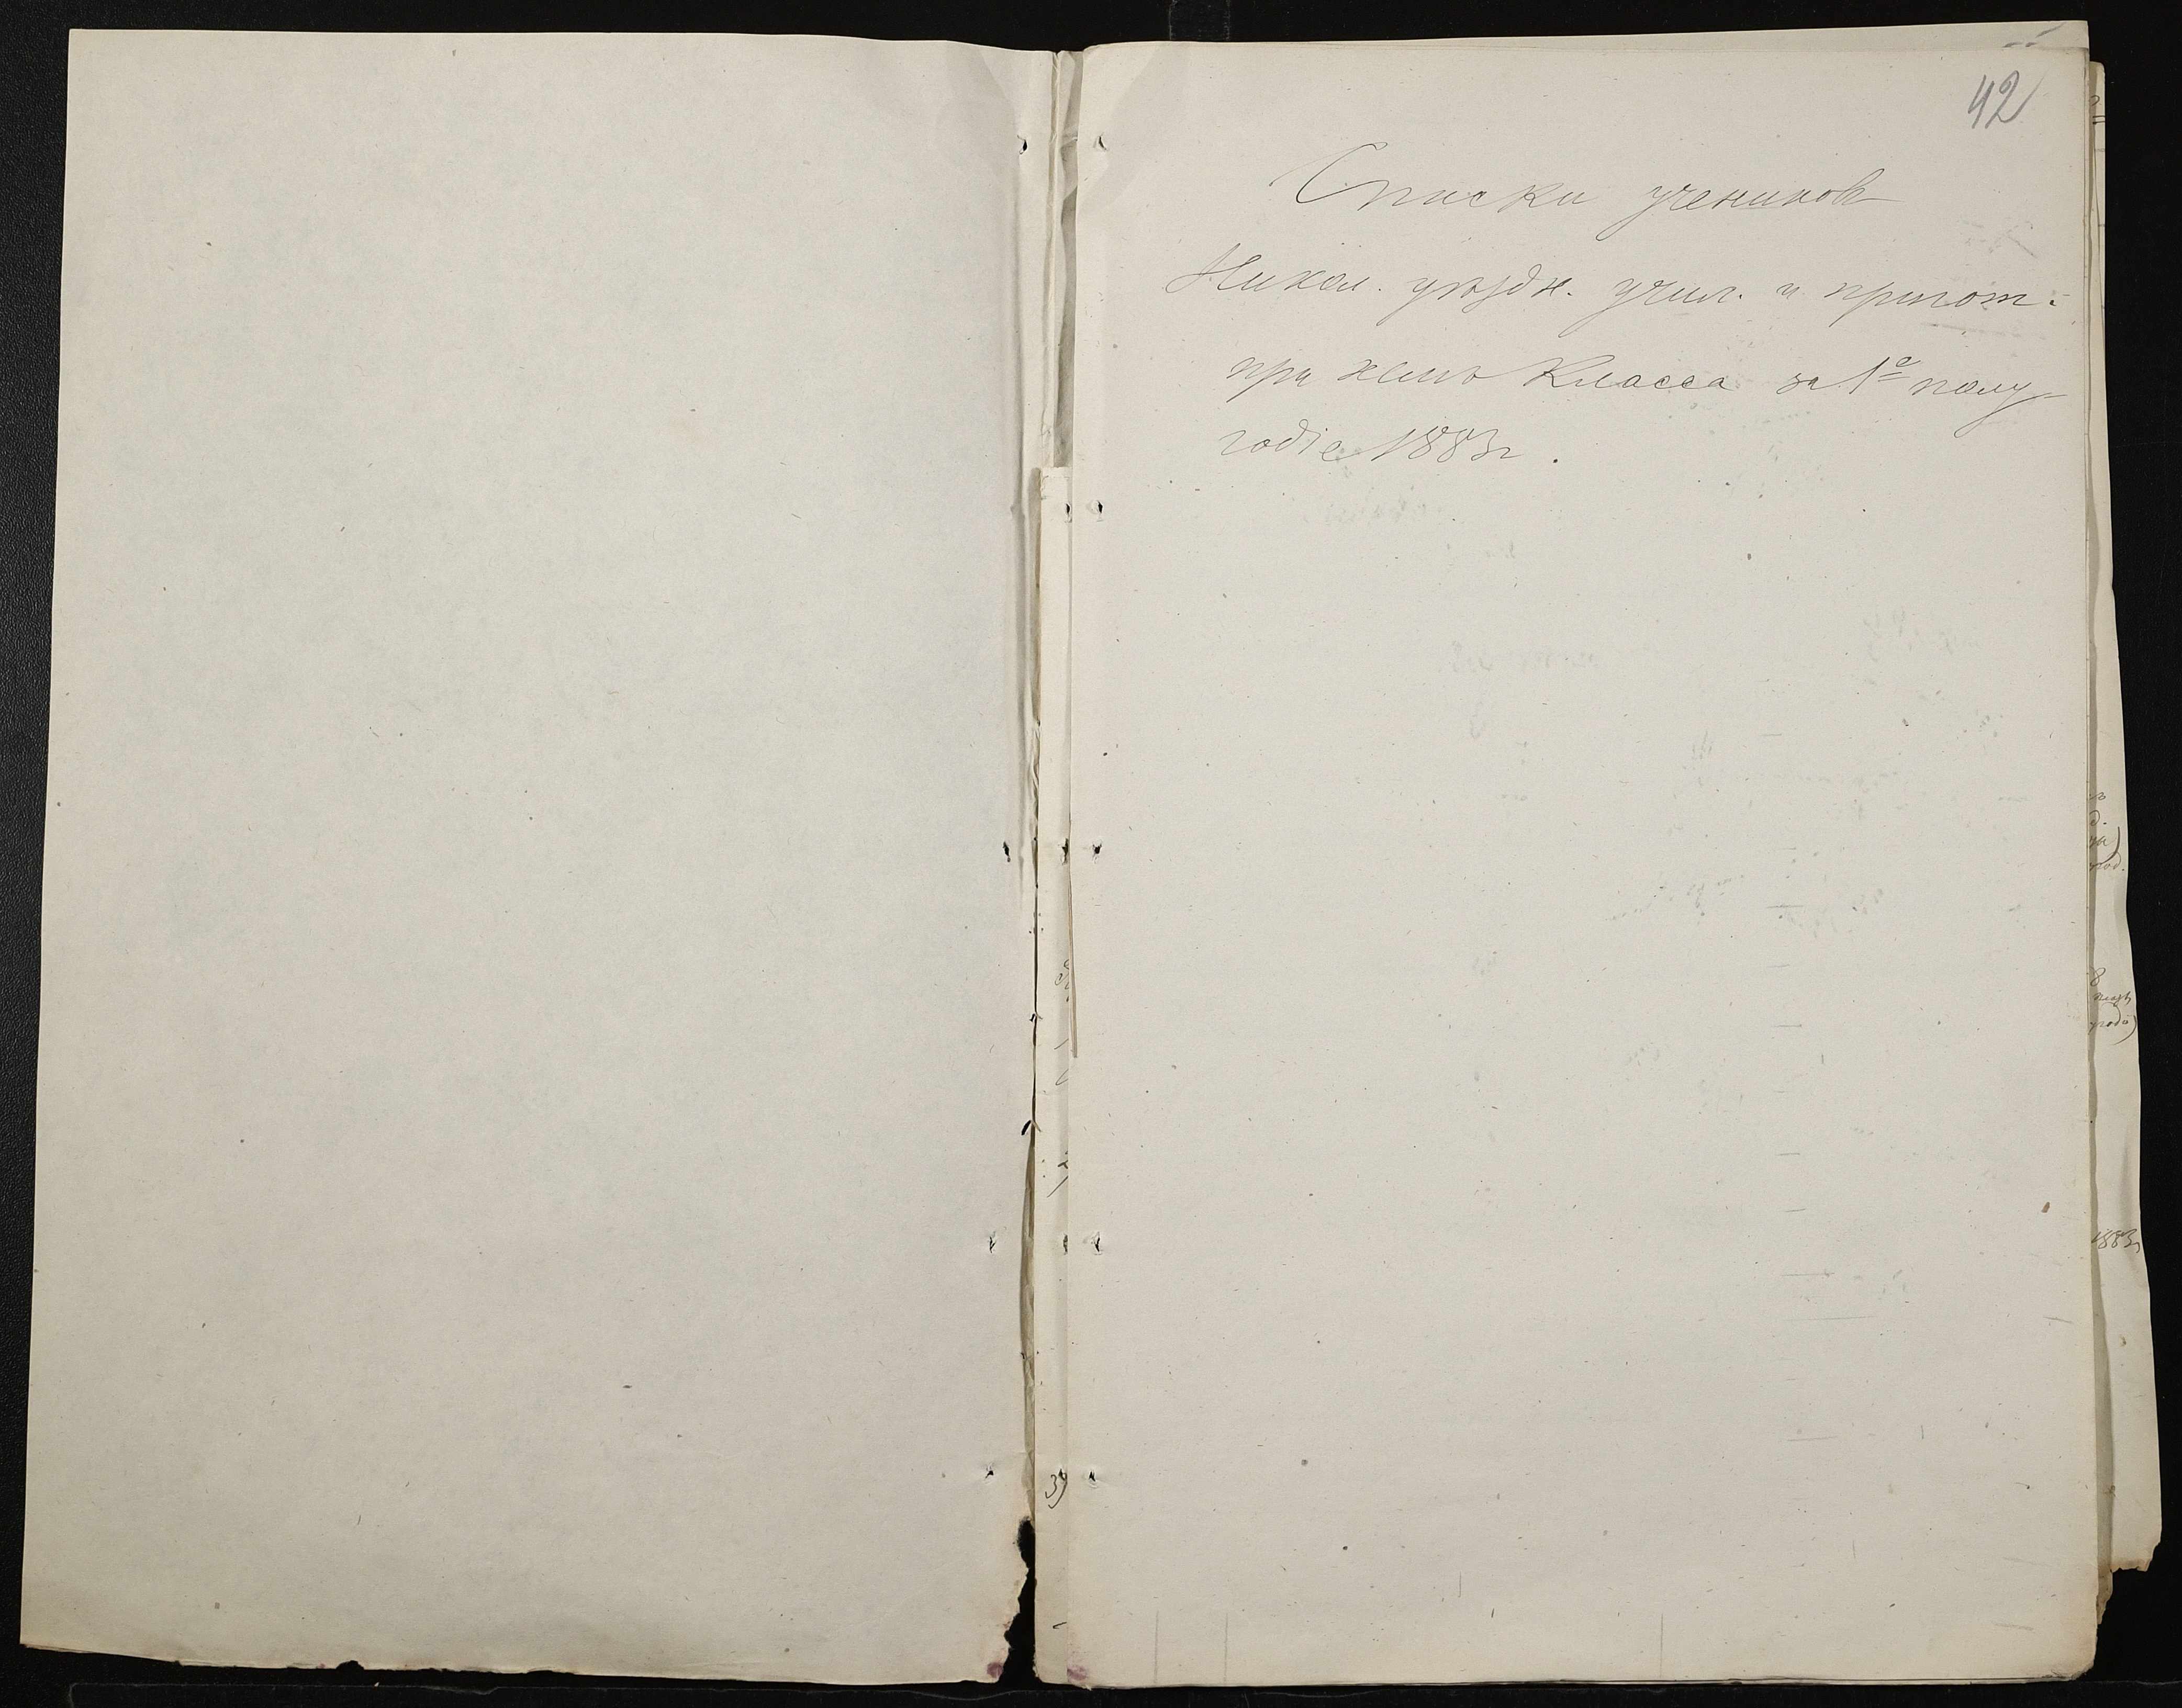 42
Списки учениковъ
Никол. уѣздн. учил. и пригот.
при немъ класса за 1е полу-
годіе 1883 г.
39
1883г